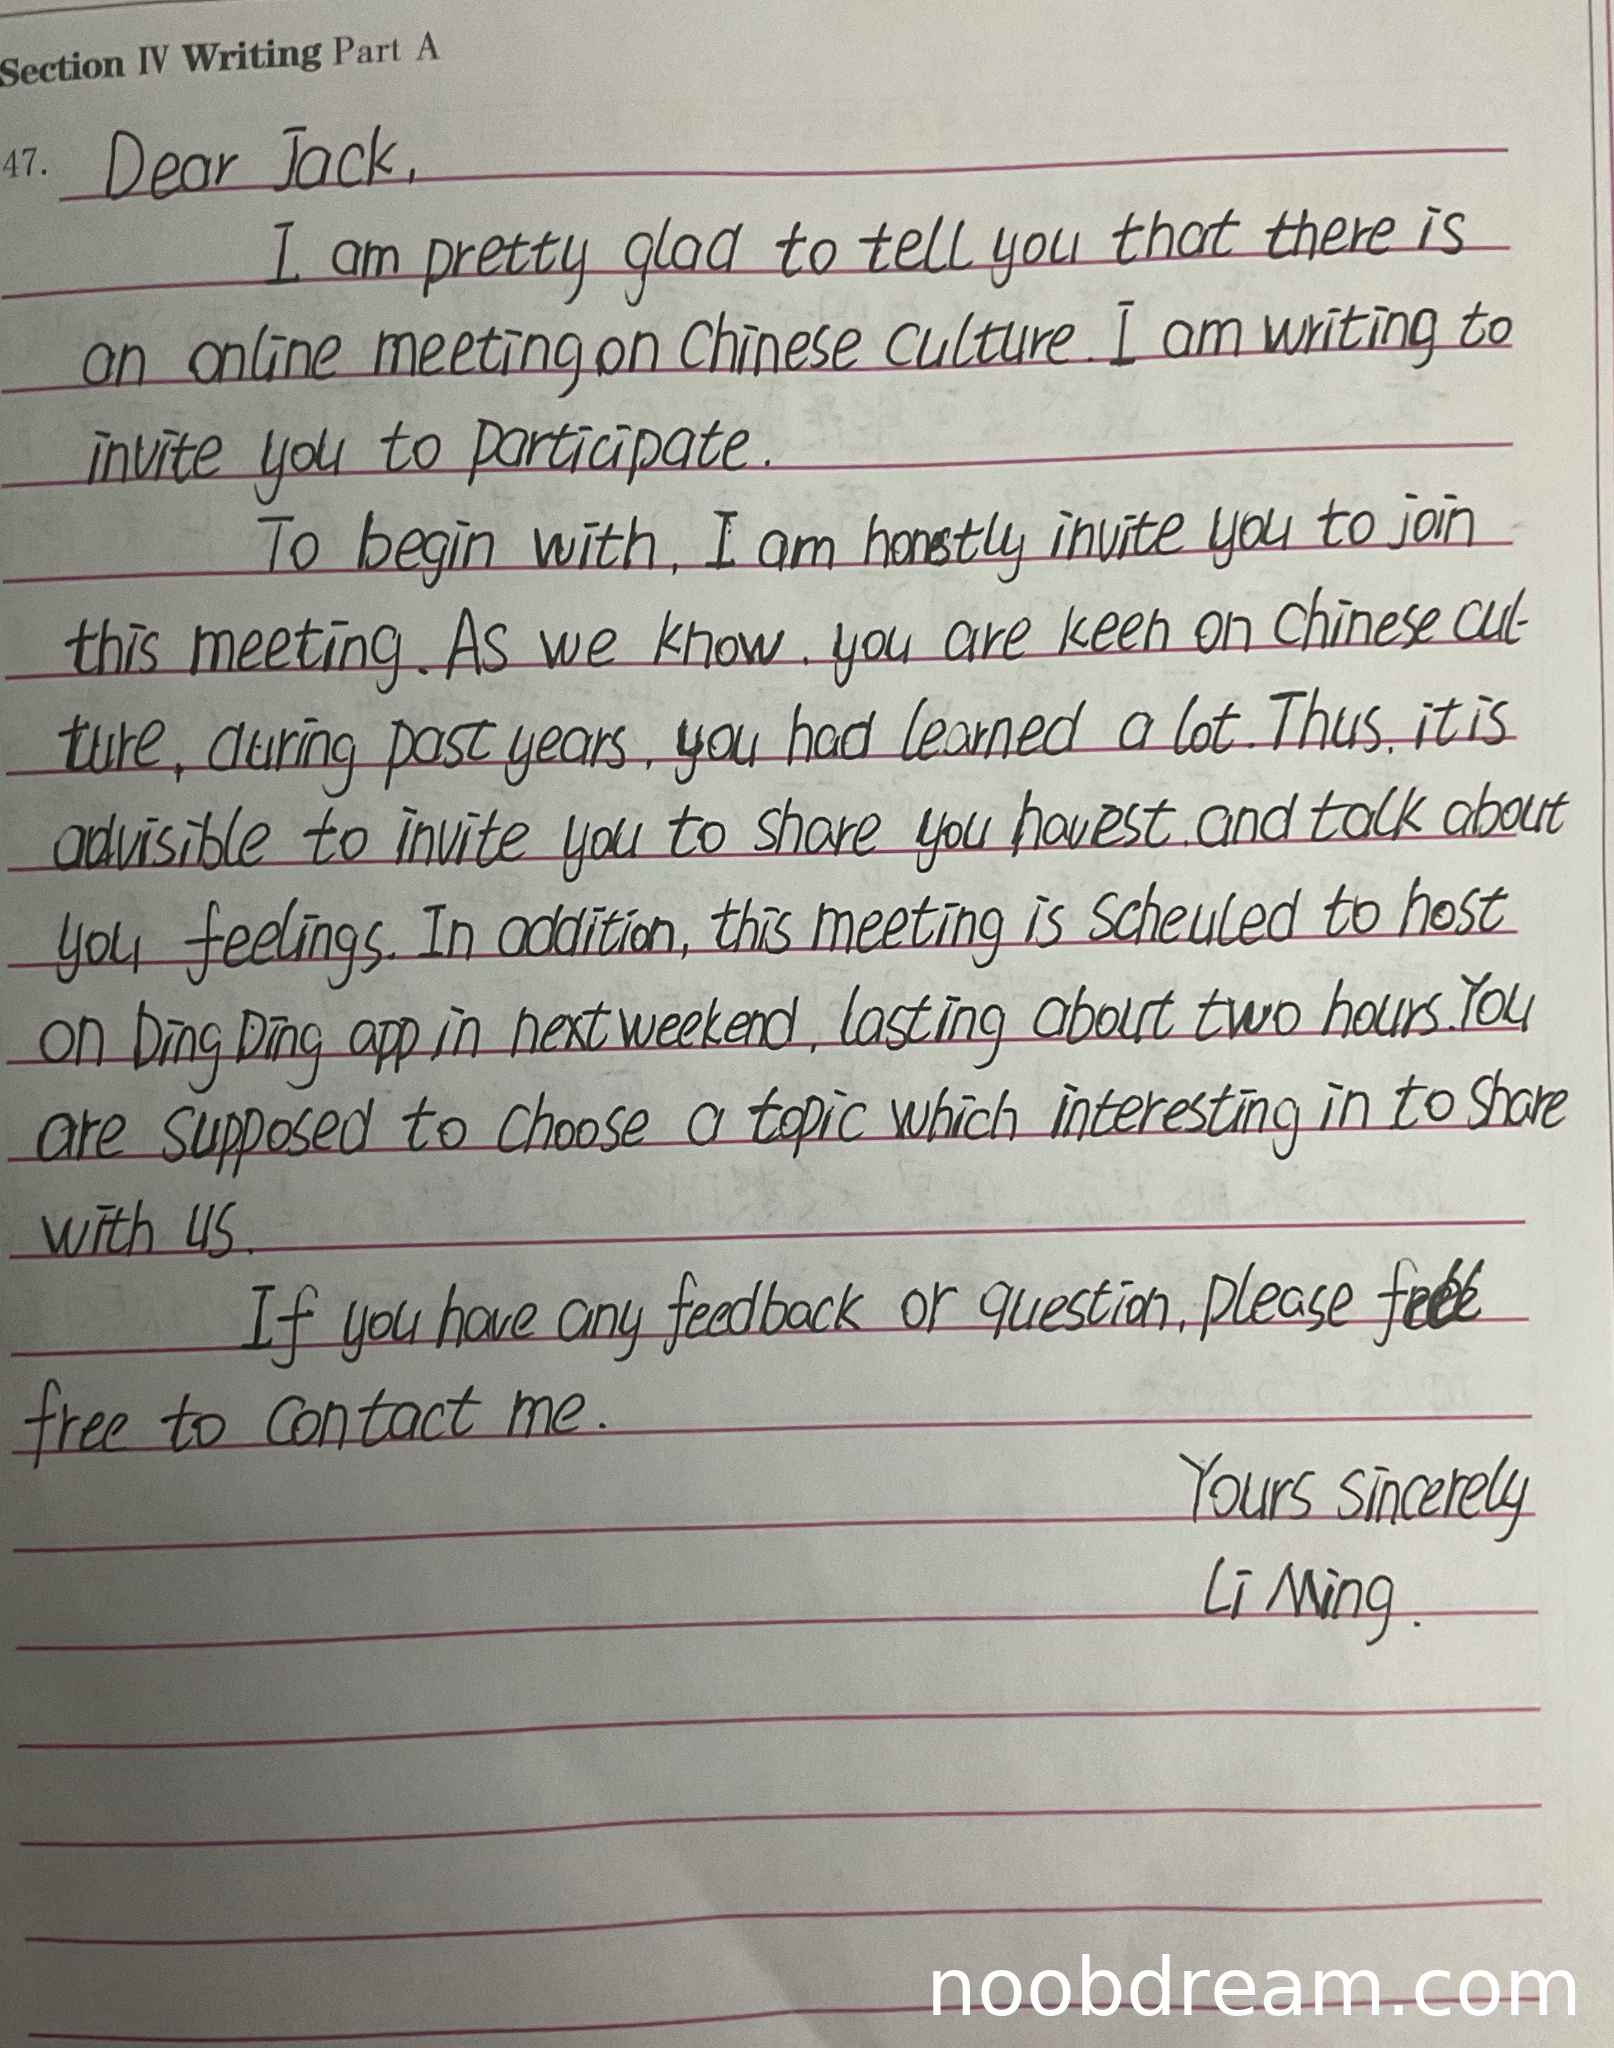 Section IV Writing Part A
47. Dear Jack,
I am pretty glad to tell you that there is
an online meeting on Chinese culture. I am writing to
invite you to participate.
To begin with, I am honstly invite you to join
this meeting. As we know, you are keen on Chinese cul-
ture, during past years, you had learned a lot. Thus, it is
advisible to invite you to share you havest and talk about
you feelings. In addition, this meeting is scheuled to host
on Ding Ding app in next weekend, lasting about two hours. You
are supposed to choose a topic which interesting in to share
with us.
If you have any feedback or question, please
free to contact me.
Yours sincerely
Li Ming.
noobdream.com